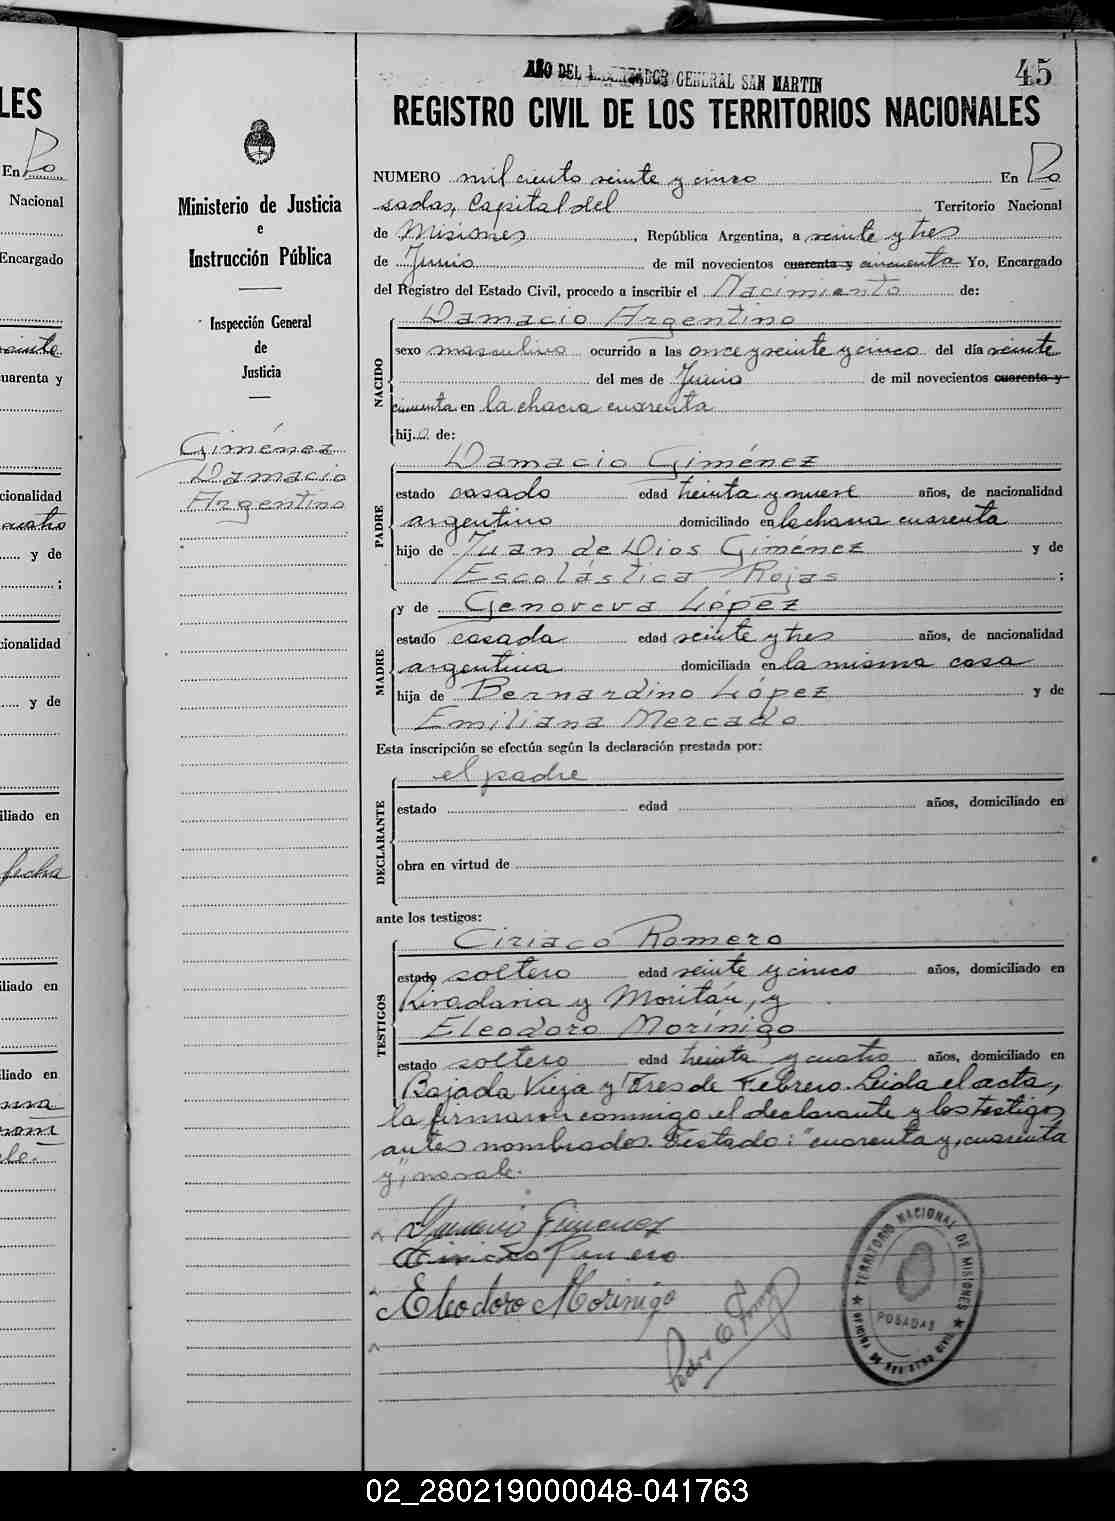 LES
En Po
Nacional
Encargado
veinte
cuarenta y
cionalidad
cuatro
y de
;
cionalidad
y de
iliado en
fecha
iliado en
iliado en
Ministerio de Justicia
e
Instrucción Pública
Inspección General
de
Justicia
Giménez
Damacio
Argentino
AÑO DEL LIBERTADOR GENERAL SAN MARTIN
45
REGISTRO CIVIL DE LOS TERRITORIOS NACIONALES
NUMERO mil ciento veinte y cinco En Po
sadas, Capital del Territorio Nacional
de Misiones, República Argentina, a veinte y tres
de Junio de mil novecientos cuarenta y cincuenta Yo, Encargado
del Registro del Estado Civil, procedo a inscribir el Nacimiento de:
Damacio Argentino
NACIDO
sexo masculino ocurrido a las once y veinte y cinco del día veinte
del mes de Junio de mil novecientos cuarenta y
cincuenta en la chacra cuarenta
hijo de:
Damacio Giménez
PADRE
estado casado edad treinta y nueve años, de nacionalidad
argentino domiciliado en la chacra cuarenta
hijo de Juan de Dios Giménez y de
Escolástica Rojas ;
y de Genoveva López
MADRE
estado casada edad veinte y tres años, de nacionalidad
argentina domiciliada en la misma casa
hija de Bernardino López y de
Emiliana Mercado
Esta inscripción se efectúa según la declaración prestada por:
el padre
DECLARANTE
estado edad años, domiciliado en
obra en virtud de
ante los testigos:
Ciriaco Romero
TESTIGOS
estado soltero edad veinte y cinco años, domiciliado en
Rivadavia y Moritán, y
Eleodoro Morínigo
estado soltero edad treinta y cuatro años, domiciliado en
Bajada Vieja y Tres de Febrero. Leida el acta,
la firmaron conmigo el declarante y los testigos
antes nombrados. Testado: "cuarenta y, cuarenta
y", no vale.
Damacio Gimenez
Ciriaco Romero
Eleodoro Morinigo
Pedro
TERRITORIO NACIONAL DE MISIONES
POSADAS
OFICINA DE REGISTRO CIVIL
02_280219000048-041763